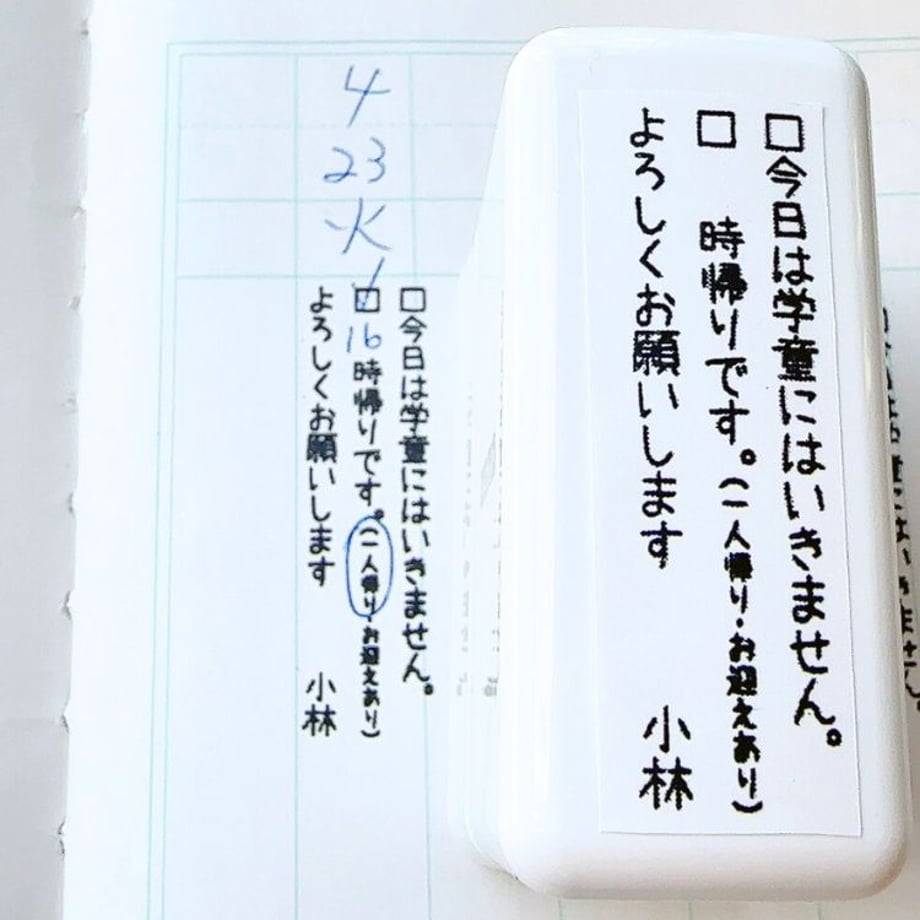 □今日は学童にはいきません。
□ 時帰りです。(一人帰り・お迎えあり)
よろしくお願いします 小林
4
23
火
□今日は学童にはいきません。
☑16時帰りです。(一人帰り・お迎えあり)
よろしくお願いします 小林